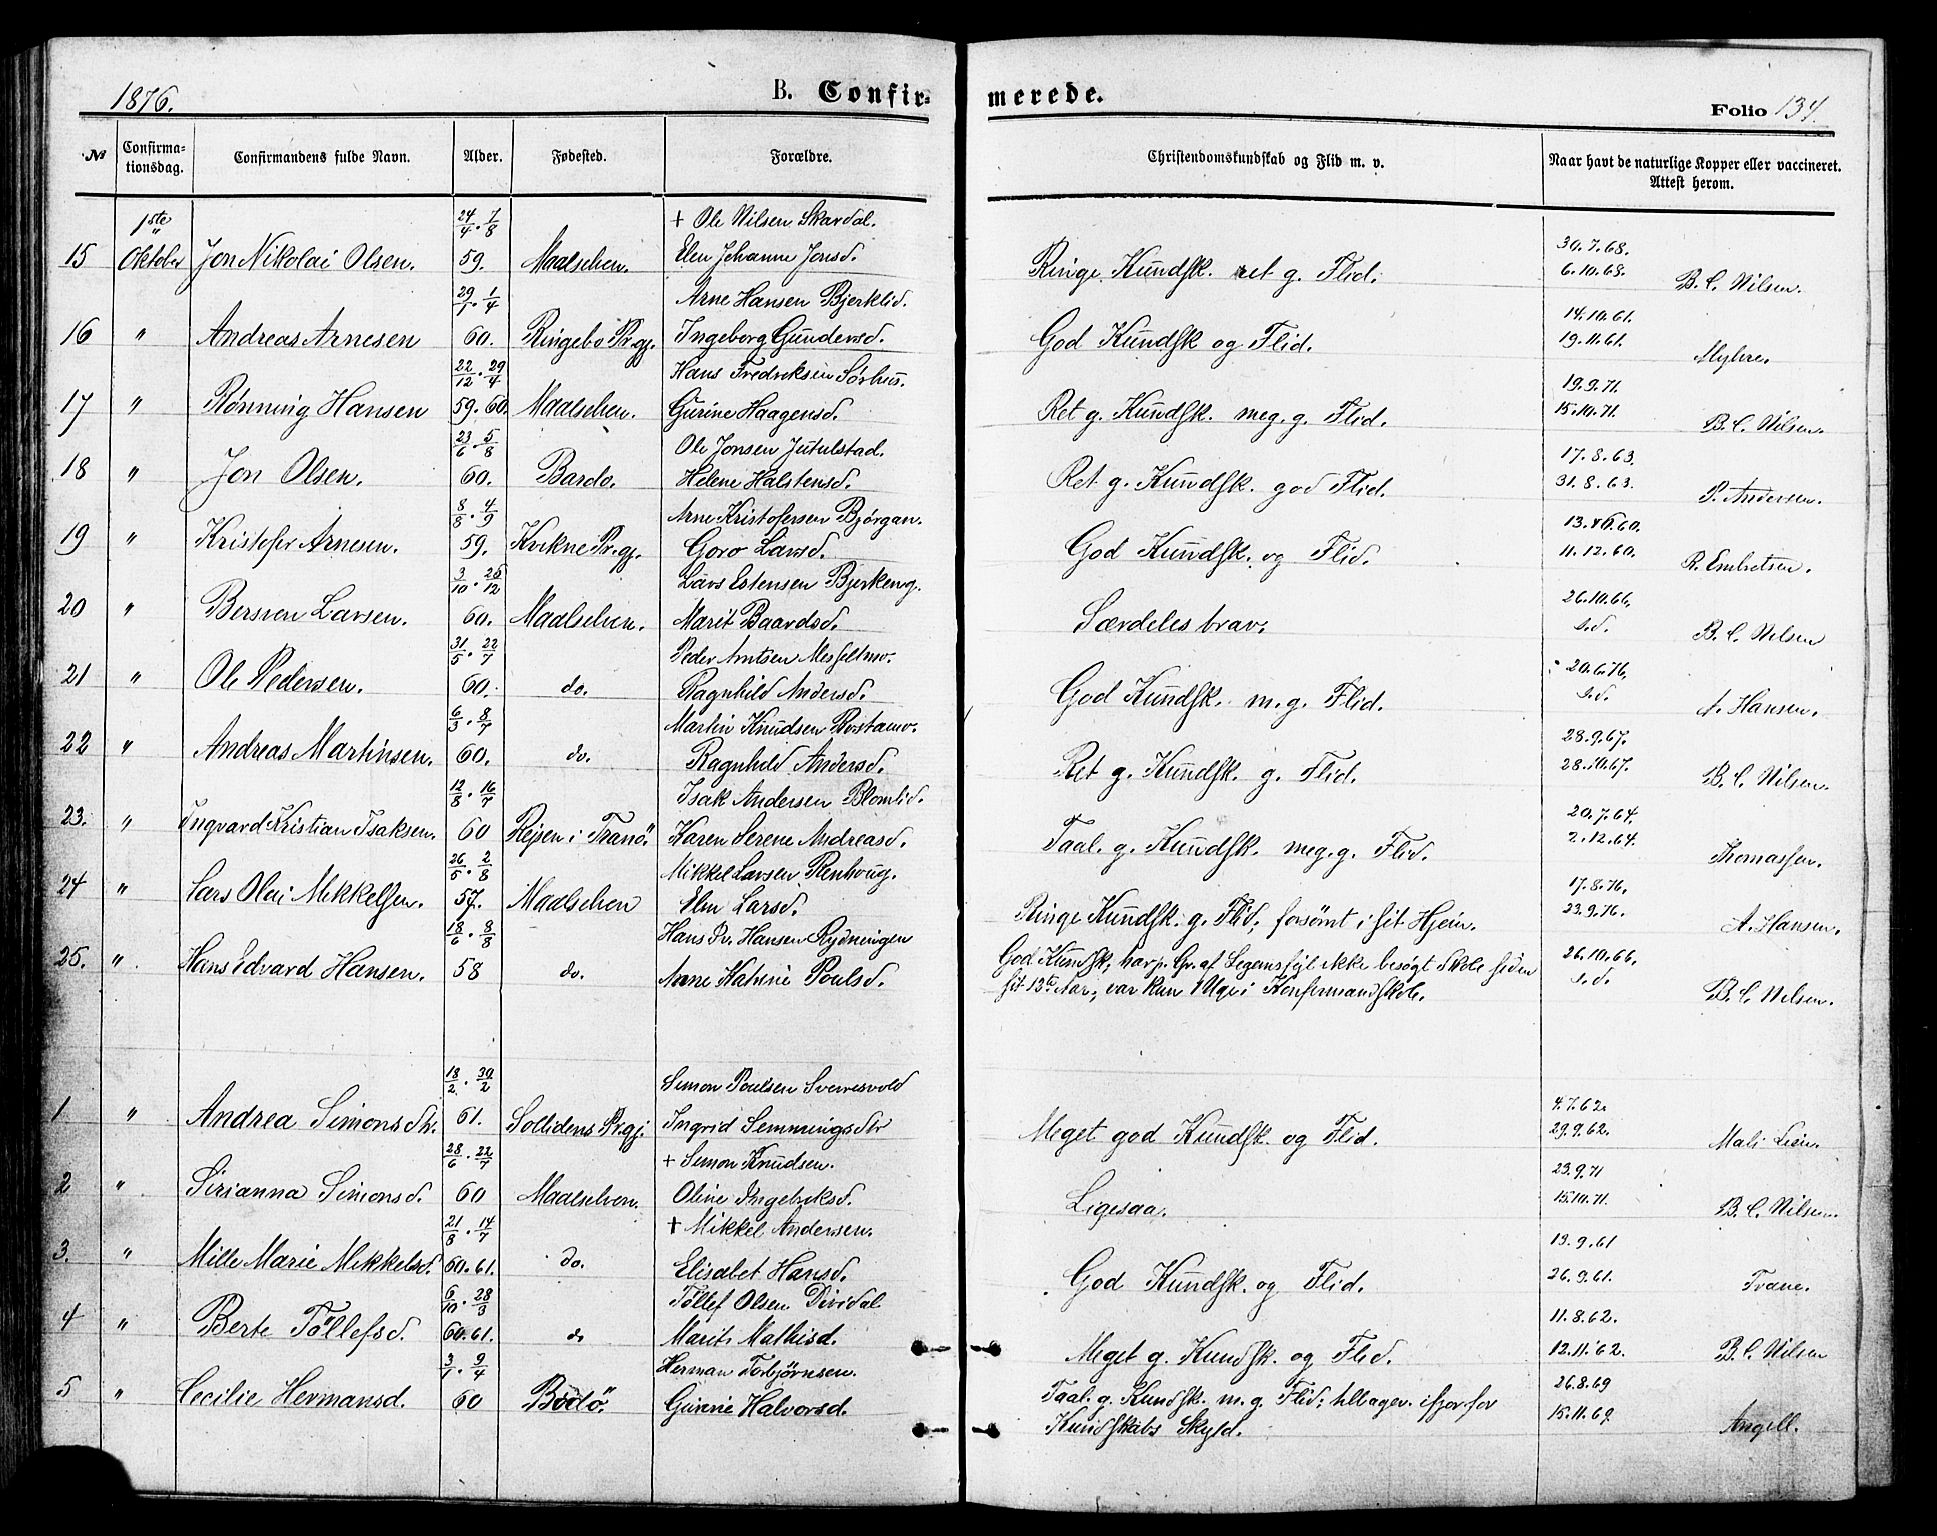 1876.
B. Confir-
merede.
Folio 134.
No
Confirma-
tionsdag.
Confirmandens fulde Navn.
Alder.
Fødested.
Forældre.
Christendomskundskab og Flid m. v.
Naar havt de naturlige Kopper eller vaccineret.
Attest herom.
1ste 24/4 . 7/8 + Ole Nilsen Skardal.
15 Oktober Jon Nikolai Olsen. 59. Maalselven. Elen Johanne Jonsd. Ringe Kundsk. ret g. Flid. 30.7.68. 6.10.68. B. C. Nilsen.
29/7 . 1/4 Arne Hansen Bjerklid.
16 " Andreas Arnesen 60. Ringebo Pr.gj. Ingeborg Gundersd. God Kundsk og Flid. 14.10.61. 19.11.61. Myhre.
22/12 . 29/4 Hans Fredriksen Sørhus.
17 " Rønning Hansen 59.60. Maalselven. Gurine Haagensd. Ret g. Kundsk. meg. g. Flid. 19.9.71. 15.10.71. B. C. Nilsen.
23/6 . 5/8 Ole Jonsen Jutulstad.
18 " Jon Olsen. 60. Bardo. Helene Halstensd. Ret g. Kundsk. god Flid. 17.8.63. 31.8.63. P. Andersen.
8/8 . 4/9 Arne Kristofersen Bjørgan.
19 " Kristofer Arnesen. 59. Kvikne Pr.gj. Goro Larsd. God Kundsk. og Flid. 11.12.60. R. Embretsen.
3/10 . 26/12 Lars Estensen Bjerkeng.
20 " Bersven Larsen. 60. Maalselven. Marit Baardsd. Særdeles brav. 26.10.66. s.d. B. C. Nilsen
31/5 . 22/7 Peder Arntsen Messeltmo.
21 " Ole Pedersen. 60. do. Ragnhild Andersd. God Kundsk. m. g. Flid. 20.6.76. s.d. A. Hansen.
6/3 . 8/7 Martin Knudsen Rostamo.
22 " Andreas Martinsen. 60. do. Ragnhild Andersd. Ret g. Kundsk. g. Flid. 28.9.67. 28.10.67. B. C. Nilsen.
12/8 . 16/7 Isak Andersen Blomlid.
23. " Ingvard Kristian Isaksen. 60 Rejsen i Tranö. Karen Serene Andreasd. Taal. g. Kundsk. meg. g. Flid. 20.7.64. 2.12.64. Thomassen.
26/5 . 2/8 Mikkel Larsen Renhoug.
24 " Lars Olai Mikkelsen. 57. Maalselven Elen Larsd. Ringe Kundsk. g. Flid; forsömt i sit Hjem. 17.8.76. 23.9.76. A. Hansen.
18/6 . 8/8 Hans Pr. Hansen Rydningen
25. " Hans Edvard Hansen. 58 do. Anne Katrine Poulsd. God Kundsk; har p. Gr. af Legemsfejl ikke besøgt Skole siden 26.10.66. s.d. B. C. Nilsen.
sit 13de Aar; var kun 1 Uge i Konfirmandskole.
18/2 . 30/2 Simon Poulsen Sverresvold
1 " Andrea Simonsdtr. 61. Sollidens Pr.gj. Ingrid Semmingsdtr Meget god Kundsk. og Flid. 4.7.62. 29.9.62. Mali Lien.
28/6 . 22/7 + Simon Knudsen.
2 " Sirianna Simonsd. 60 Maalselven. Oline Ingebriksd. Ligesaa. 23.9.71 15.10.71. B. C. Nilsen.
21/8 . 14/7 + Mikkel Andersen.
3. " Mille Marie Mikkelsd. 60.61. do. Elisabet Hansd. God Kundsk. og Flid. 13.9.61 26.9.61. Trane.
6/10 . 28/3 Töllef Olsen Dividal
4 " Berte Töllefsd. 60.61. do Marit Mathisd. Meget g. Kundsk. og Flid. 11.8.62. 12.11.62. B. C. Nilsen
3/1 . 9/4 Herman Torbjörnsen.
5 " Cecilie Hermansd. 60 Bodö. Gurine Halvorsd. Taal. g. Kundsk. m. g. Flid; tilbagev. ifjor for 26.8.69 15.11.69. Angell.
Kundskabs Skyld.